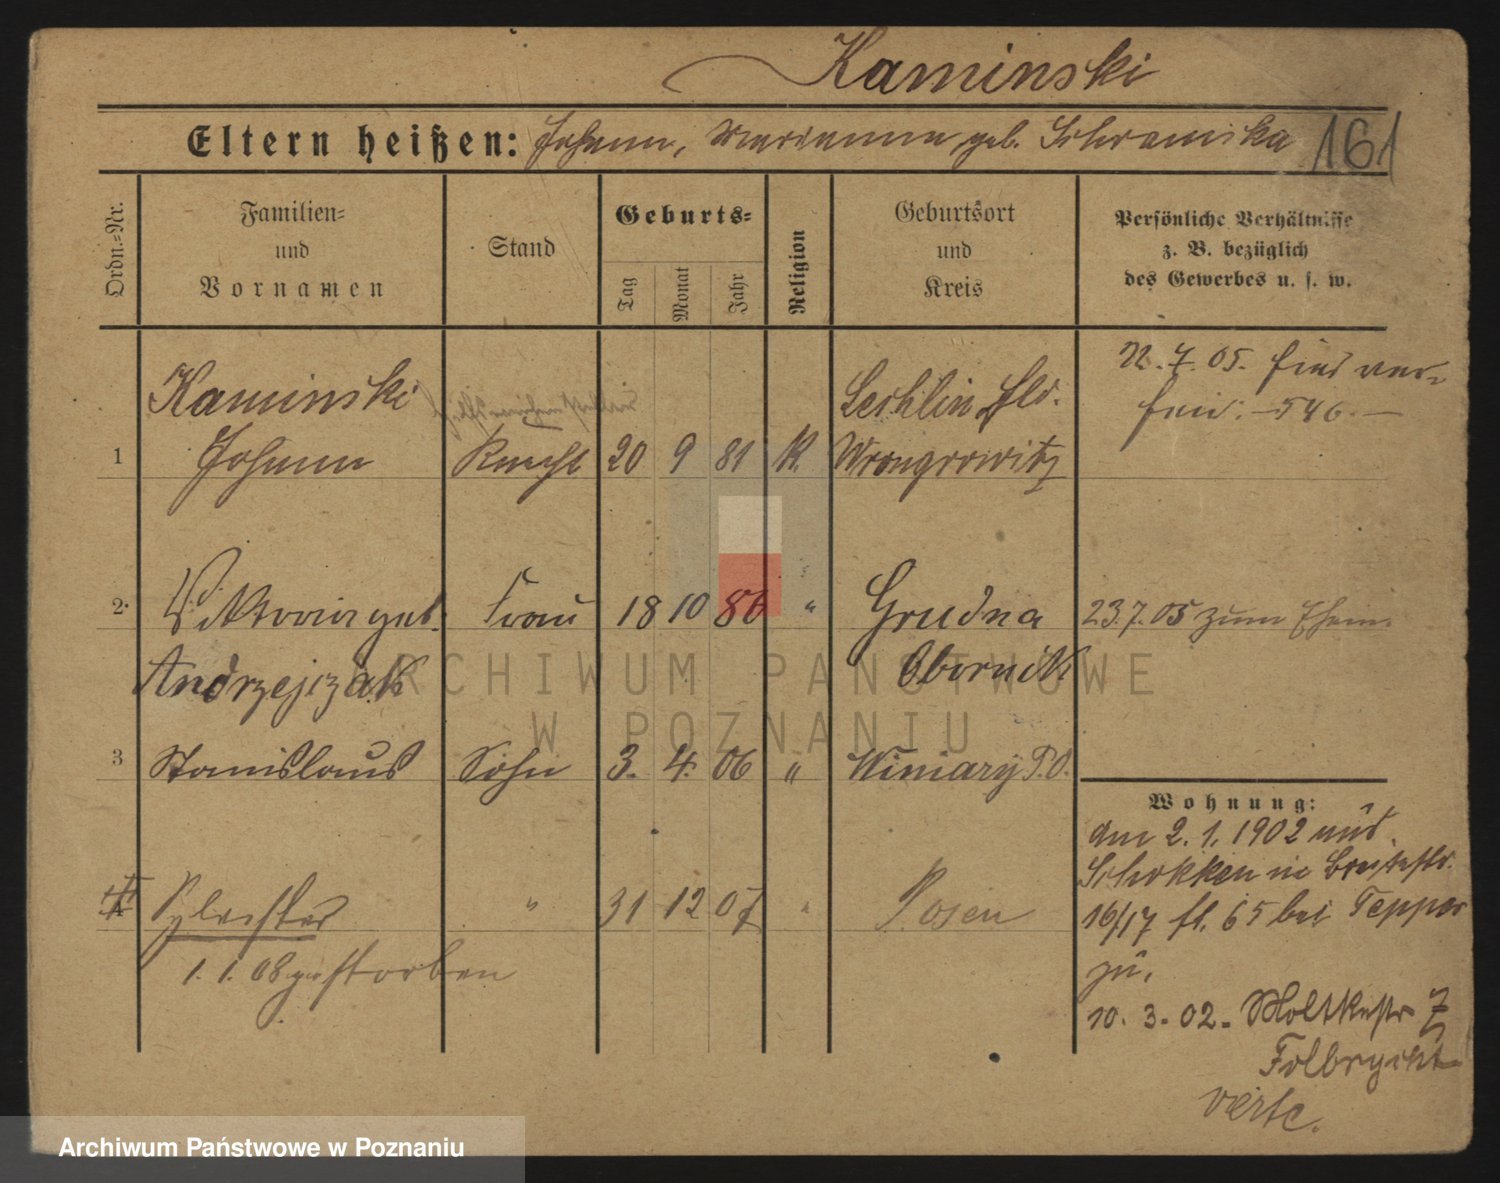 Kaminski
Eltern heißen: Johann, Marianna geb. Schramska 161
Ordn.-Nr.
Familien-
und
Vornamen
Stand
Geburts-
Tag
Monat
Jahr
Religion
Geburtsort
und
Kreis
Persönliche Verhältnisse
z. B. bezüglich
des Gewerbes u. s. w.
22.7.05. hier ver-
heir. 546.
Kaminski Lechlin Hld.
1 Johann Knecht 20 9 81 K. Wrongrowitz
2. Viktoria geb. Frau 18 10 86 " Grudna 23.7.05 zum Ehem.
Andrzejczak Obornik
3 Stanislaus Sohn 3. 4. 06 " Winiary P.O.
4 Sylvester " 31 12 07 " Posen
1. 1. 08 gestorben
Wohnung:
Am 2.1.1902 aus
Schokken in Breitestr.
16/17 fl. 65 bei Tepper
zu.
10.3.02. Moltkestr 7
Folbrycht
verte.
ARCHIWUM PAŃSTWOWE
W POZNANIU
Archiwum Państwowe w Poznaniu